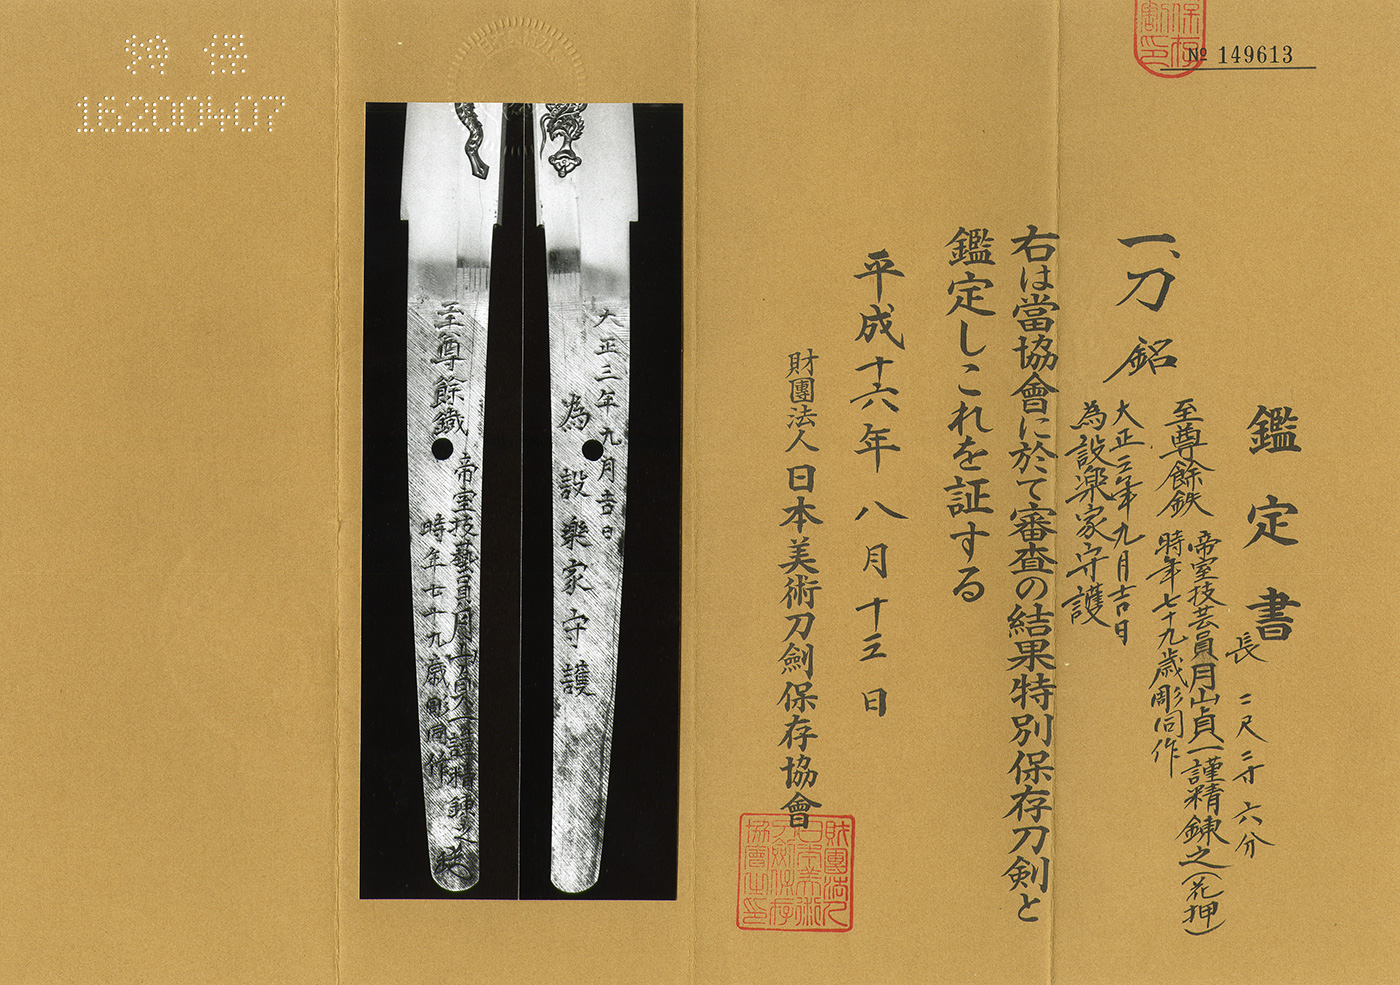 保存
割印
№ 149613
鑑定書
長 二尺三寸六分
一、刀 銘
至尊餘鉄 帝室技芸員月山貞一謹精錬之(花押)
時年七十九歳彫同作
大正三年九月吉日
為設楽家守護
右は當協會に於て審査の結果特別保存刀剣と
鑑定しこれを証する
平成十六年八月十三日
財團法人日本美術刀劍保存協會
財團法人
日本美術
刀劍保存
協會之印
大正三年九月吉日
為設樂家守護
至尊餘鐵
帝室技藝員月山貞一謹精錬之
時年七十九歳彫同作
特 保
16200407